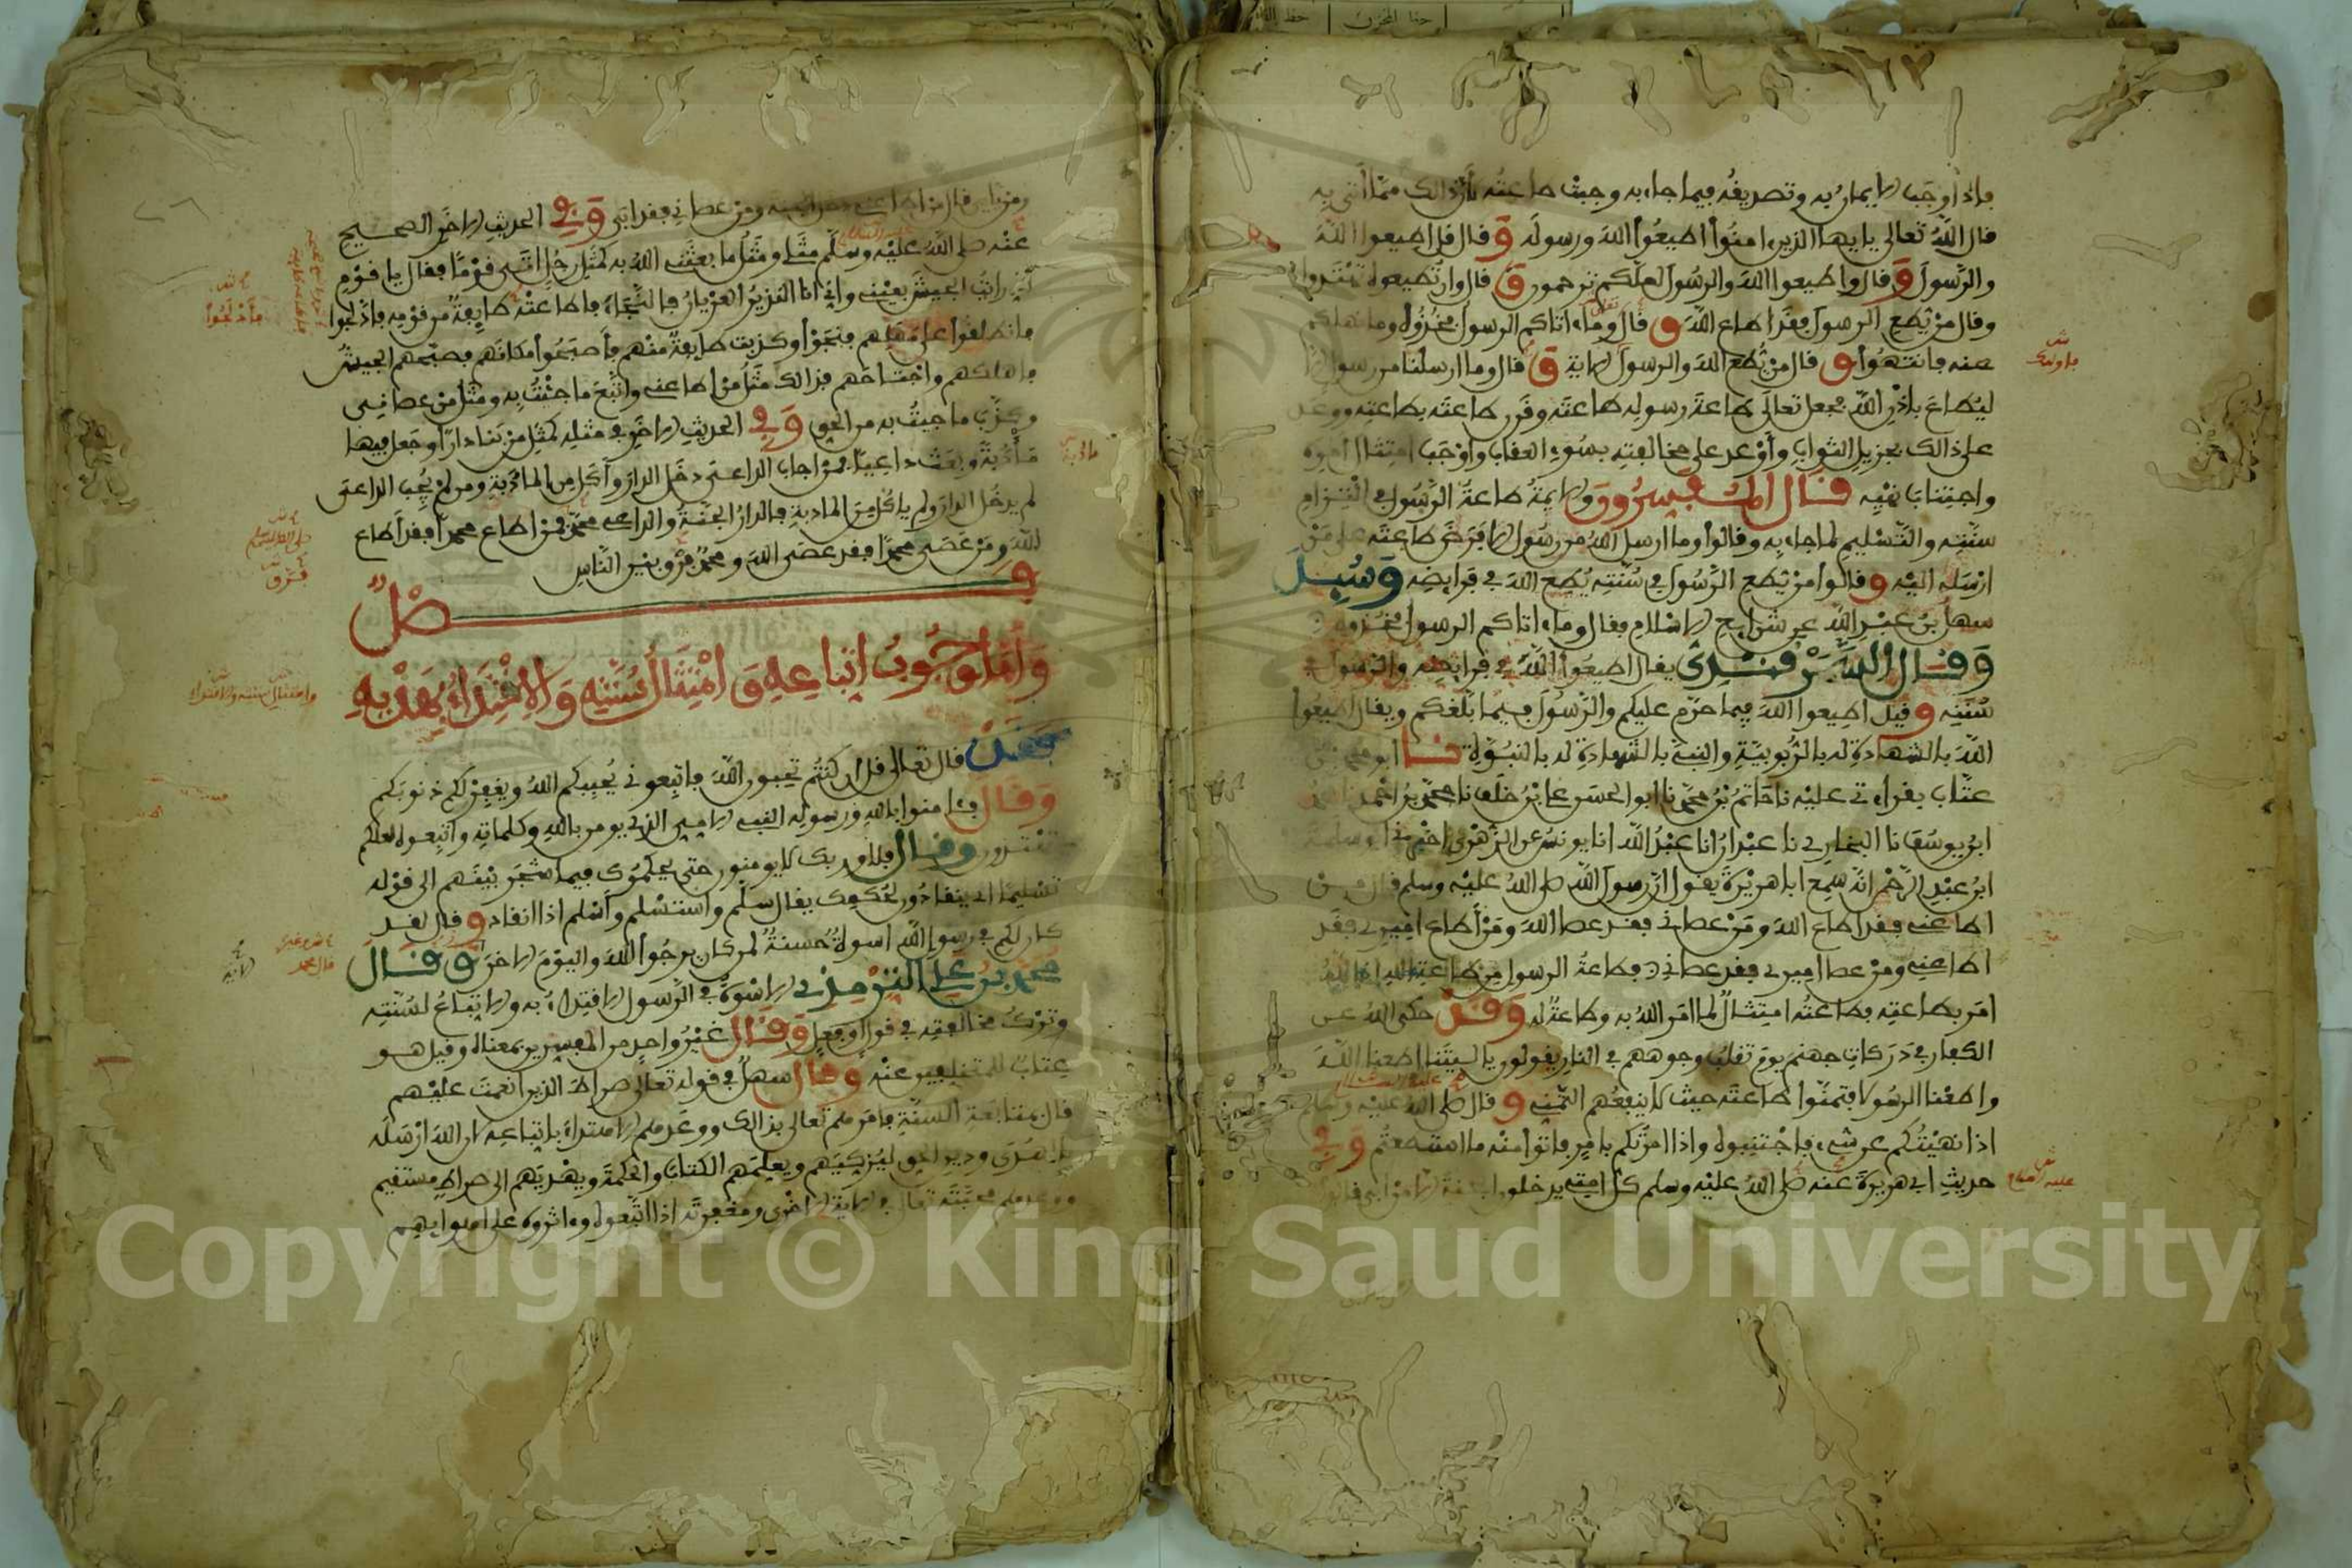 فإذا وجب الإيمان به وتصديقه فيما جاء به وجبت طاعته لأن ذالك مما أتى به
قال الله تعالى يا يها الذين ءامنوا أطيعوا الله ورسوله وقال قل أطيعوا الله
والرسول وقال وأطيعوا الله والرسول لعلكم ترحمون وقال وإن تطيعوه تهتدوا
وقال من يطع الرسول فقد أطاع الله وقال وما ءاتاكم الرسول فخذوه وما نهاكم
عنه فانتهوا وقال من يطع الله والرسول الاية وقال وما أرسلنا من رسول إلا
ليطاع بإذن الله فجعل تعالى طاعة رسوله طاعته وقرن طاعته بطاعته ووعد
على ذالك بجزيل الثواب وأوعد على مخالفته بسوء العقاب وأوجب امتثال أمره
واجتناب نهيه قال المفسرون والايمة طاعة الرسول في التزام
سنته والتسليم لما جاء به وقالوا وما أرسل الله من رسول إلا فرض طاعته على من
أرسله إليه وقالوا من يطع الرسول في سنته يطع الله في فرايضه وسيل
سهل بن عبد الله عن شرايع الاسلام فقال وما ءاتاكم الرسول فخذوه
وقال السمرقندي يقال أطيعوا الله في فرايضه والرسول في
سنته وقيل أطيعوا الله فيما حرم عليكم والرسول فيما بلغكم ويقال أطيعوا
الله بالشهادة له بالربوبية والنبي بالشهادة له بالنبوة نا أبو محمد بن
عتاب بقراءتي عليه نا حاتم بن محمد نا أبو الحسن علي بن خلف نا محمد بن أحمد نا محمد
ابن يوسف نا البخاري نا عبدان أنا عبد الله أنا يونس عن الزهري أخبرني أبو سلمة
ابن عبد الرحمن أنه سمع أبا هريرة يقول إن رسول الله صلى الله عليه وسلم قال من
أطاعني فقد أطاع الله ومن عصاني فقد عصا الله ومن أطاع أميري فقد
أطاعني ومن عصا أميري فقد عصاني فطاعة الرسول من طاعة الله إذ الله
أمر بطاعته فطاعته امتثال لما أمر الله به وطاعة له وقد حكى الله عن
الكفار في دركات جهنم يوم تقلب وجوههم في النار يقولون يا ليتنا أطعنا الله
وأطعنا الرسولا فتمنوا طاعته حيث لا ينفعهم التمني وقال صلى الله عليه وسلم
إذا نهيتكم عن شيء فاجتنبوه وإذا أمرتكم بأمر فاتوا منه ما استطعتم وفي
حديث أبي هريرة عنه صلى الله عليه وسلم كل أمتي يدخلون الجنة إلا من أبى قالوا
ومن يأبى قال من أطاعني دخل الجنة ومن عصاني فقد أبى وفي الحديث الاخر الصحيح
عنه صلى الله عليه وسلم مثلي ومثل ما بعثني الله به كمثل رجل أتى قوما فقال يا قوم
إني رأيت الجيش بعيني وإني أنا النذير العريان فالنجاء فأطاعته طايفة من قومه فأدلجوا
فانطلقوا على مهلهم فنجوا وكذبت طايفة منهم فأصبحوا مكانهم فصبحهم الجيش
فأهلكهم واجتاحهم فذالك مثل من أطاعني واتبع ما جئت به ومثل من عصاني
وكذب ما جيت به من الحق وفي الحديث الاخر في مثله كمثل من بنا دارا وجعل فيها
مأدبة وبعث داعيا فمن أجاب الداعي دخل الدار وأكل من المأدبة ومن لم يجب الداعي
لم يدخل الدار ولم ياكل من المادبة فالدار الجنة والداعي محمد فمن أطاع محمدا فقد أطاع
الله ومن عصى محمدا فقد عصى الله ومحمد فرق بين الناس
فصل
وأما وجوب اتباعه وامتثال سنته والاقتداء بهديه
فقد قال تعالى قل إن كنتم تحبون الله فاتبعوني يحببكم الله ويغفر لكم ذنوبكم
وقال فئامنوا بالله ورسوله النبي الامي الذي يومن بالله وكلماته واتبعوه لعلكم
تهتدون وقال فلا وربك لا يومنون حتى يحكموك فيما شجر بينهم إلى قوله
تسليما أي ينقادون لحكمك يقال سلم واستسلم وأسلم إذا انقاد وقال لقد
كان لكم في رسول الله أسوة حسنة لمن كان يرجوا الله واليوم الاخر وقال
محمد بن علي الترمذي الاسوة في الرسول الاقتداء به والاتباع لسنته
وترك مخالفته في قول أو فعل وقال غير واحد من المفسرين بمعناه وقيل هو
عتاب للمتخلفين عنه وقال سهل في قوله تعالى صراط الذين أنعمت عليهم
قال بمتابعة السنة فأمرهم تعالى بذالك ووعدهم الاهتداء باتباعه لأن الله أرسله
بالهدى ودين الحق ليزكيهم ويعلمهم الكتاب والحكمة ويهديهم إلى صراط مستقيم
ووعدهم محبته تعالى في الاية الاخرى ومغفرته إذا اتبعوه وءاثروه على أهوايهم
Copyright © King Saud University